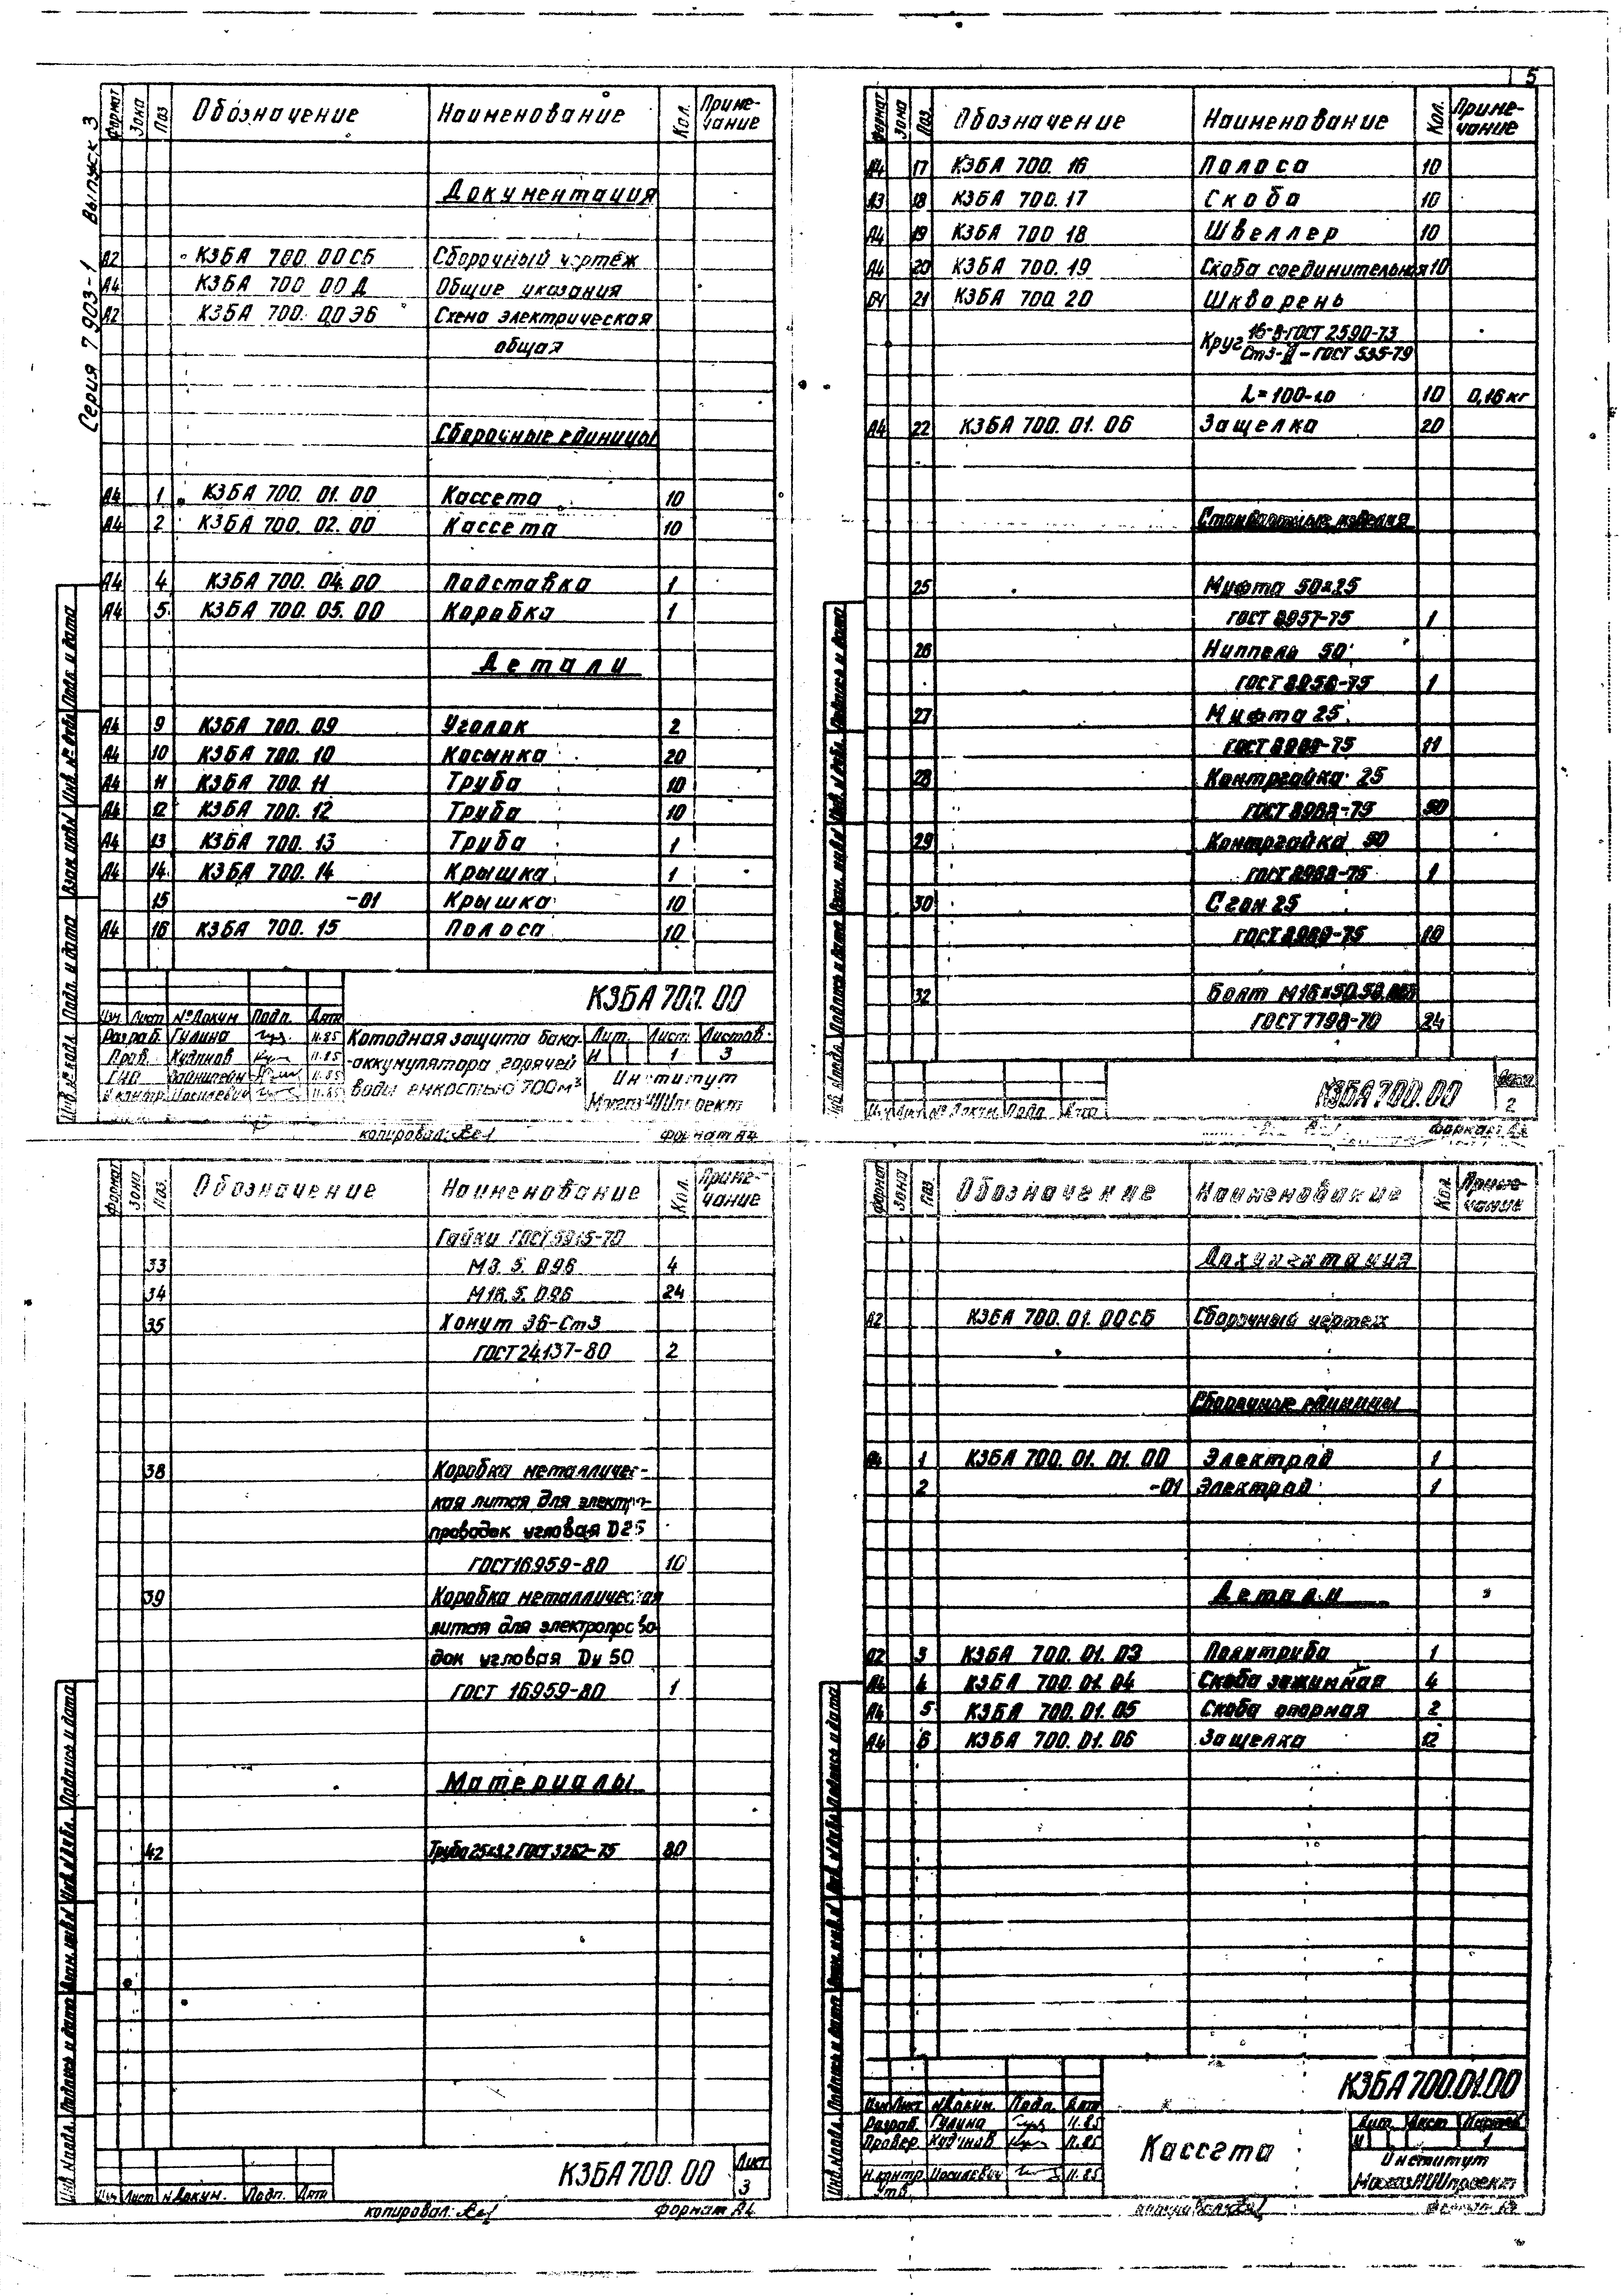 5
Серия 7.903-1 Выпуск 3
Формат Зона Поз. Обозначение Наименование Кол. Приме-
чание
Документация
А2 КЗБА 700.00СБ Сборочный чертёж
А4 КЗБА 700 00 Д Общие указания
А2 КЗБА 700.00ЭБ Схема электрическая
общая
Сборочные единицы
А4 1 КЗБА 700.01.00 Кассета 10
А4 2 КЗБА 700.02.00 Кассета 10
А4 4 КЗБА 700.04.00 Подставка 1
А4 5 КЗБА 700.05.00 Коробка 1
Детали
А4 9 КЗБА 700.09 Уголок 2
А4 10 КЗБА 700.10 Косынка 20
А4 11 КЗБА 700.11 Труба 10
А4 12 КЗБА 700.12 Труба 10
А4 13 КЗБА 700.13 Труба 1
А4 14 КЗБА 700.14 Крышка 1
15 -01 Крышка 10
А4 16 КЗБА 700.15 Полоса 10
Инв. № подл. Подп. и дата Взам. инв. № Инв. № дубл. Подп. и дата
КЗБА 700.00
Изм. Лист № Докум. Подп. Дата
Разраб. Гулина 11.85
Пров. Кудинов 11.85
ГИП 11.85
Н.контр. Иосилевич 11.85
Катодная защита бака-
-аккумулятора горячей
воды емкостью 700м³
Лит. Лист Листов
И 1 3
Институт
МосгазНИИпроект
копировал: Формат А4
Формат Зона Поз. Обозначение Наименование Кол. Приме-
чание
А4 17 КЗБА 700.16 Полоса 10
А3 18 КЗБА 700.17 Скоба 10
А4 19 КЗБА 700 18 Швеллер 10
А4 20 КЗБА 700.19 Скоба соединительная 10
БЧ 21 КЗБА 700.20 Шкворень
Круг 16-В-ГОСТ 2590-73
Ст3-II-ГОСТ 535-79
L=100-1.0 10 0,16кг
А4 22 КЗБА 700.01.06 Защелка 20
Стандартные изделия
25 Муфта 50х25
ГОСТ 8957-75 1
26 Ниппель 50
ГОСТ 8958-75 1
27 Муфта 25
11
28 Контргайка 25
ГОСТ 8968-75 50
29 Контргайка 50
ГОСТ 8968-75 1
30 Сгон 25
ГОСТ 8969-75 10
32 Болт М16х50.58.
ГОСТ 7798-70 24
Инв. № подл. Подпись и дата Взам. инв. № Инв. № дубл. Подпись и дата
Изм. Лист № Докум. Подп. Дата
КЗБА 700.00
Лист
2
Формат А4
Формат Зона Поз. Обозначение Наименование Кол. Приме-
чание
Гайки ГОСТ 5915-70
33 М8.5.096 4
34 М16.5.096 24
35 Хомут 36-Ст3
ГОСТ 24137-80 2
38 Коробка металличес-
кая литая для электро-
проводок угловая D25
ГОСТ 16959-80 10
39 Коробка металлическая
литая для электропрово-
док угловая Dу 50
ГОСТ 16959-80 1
Материалы
42 Труба 25х3,2 ГОСТ 3262-75 80
Инв. № подл. Подпись и дата Взам. инв. № Инв. № дубл. Подпись и дата
Изм. Лист № Докум. Подп. Дата
КЗБА 700.00
Лист
3
копировал: Формат А4
Формат Зона Поз. Обозначение Наименование Кол. Приме-
чание
Документация
А2 КЗБА 700.01.00СБ Сборочный чертеж
Сборочные единицы
А4 1 КЗБА 700.01.01.00 Электрод 1
2 -01 Электрод 1
Детали
А2 3 КЗБА 700.01.03 Полутруба 1
А4 4 КЗБА 700.01.04 Скоба зажимная 4
А4 5 КЗБА 700.01.05 Скоба опорная 2
А4 6 КЗБА 700.01.06 Защелка 12
Инв. № подл. Подпись и дата Взам. инв. № Инв. № дубл. Подпись и дата
КЗБА 700.01.00
Изм. Лист № Докум. Подп. Дата
Разраб. Гулина 11.85
Провер. Кудинов 11.85
Н.контр. Иосилевич 11.85
Утв.
Кассета
Лит. Лист Листов
И 1
Институт
МосгазНИИпроект
копировал: Формат А4